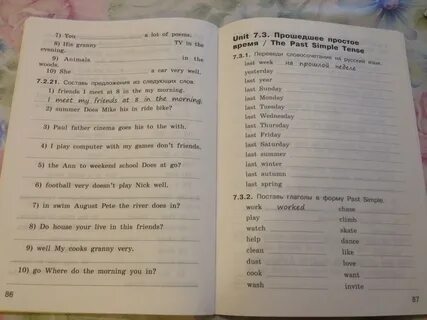 7) You ____ a lot of poems.
8) His granny ____ TV in the
evening.
9) Animals ____ in the
woods.
10) She ____ a car very well.
7.2.21. Составь предложения из следующих слов:
1) friends I meet at 8 in the my morning.
I meet my friends at 8 in the morning.
2) summer Does Mike his in ride bike?
3) Paul father cinema goes his to the with.
4) I play computer with my games don't friends.
5) the Ann to weekend school Does at go?
6) football very doesn't play Nick well.
7) in swim August Pete the river does in?
8) Do house your live in this friends?
9) well My cooks granny very.
10) go Where do the morning you in?
86
Unit 7.3. Прошедшее простое
время / The Past Simple Tense
7.3.1. Переведи словосочетание на русский язык.
last week на прошлой неделе
yesterday
last year
last Sunday
last Monday
last Tuesday
last Wednesday
last Thursday
last Friday
last Saturday
last summer
last winter
last autumn
last spring
7.3.2. Поставь глаголы в форму Past Simple.
work worked chase
play climb
watch skate
help dance
clean like
dust love
cook want
wash invite
87